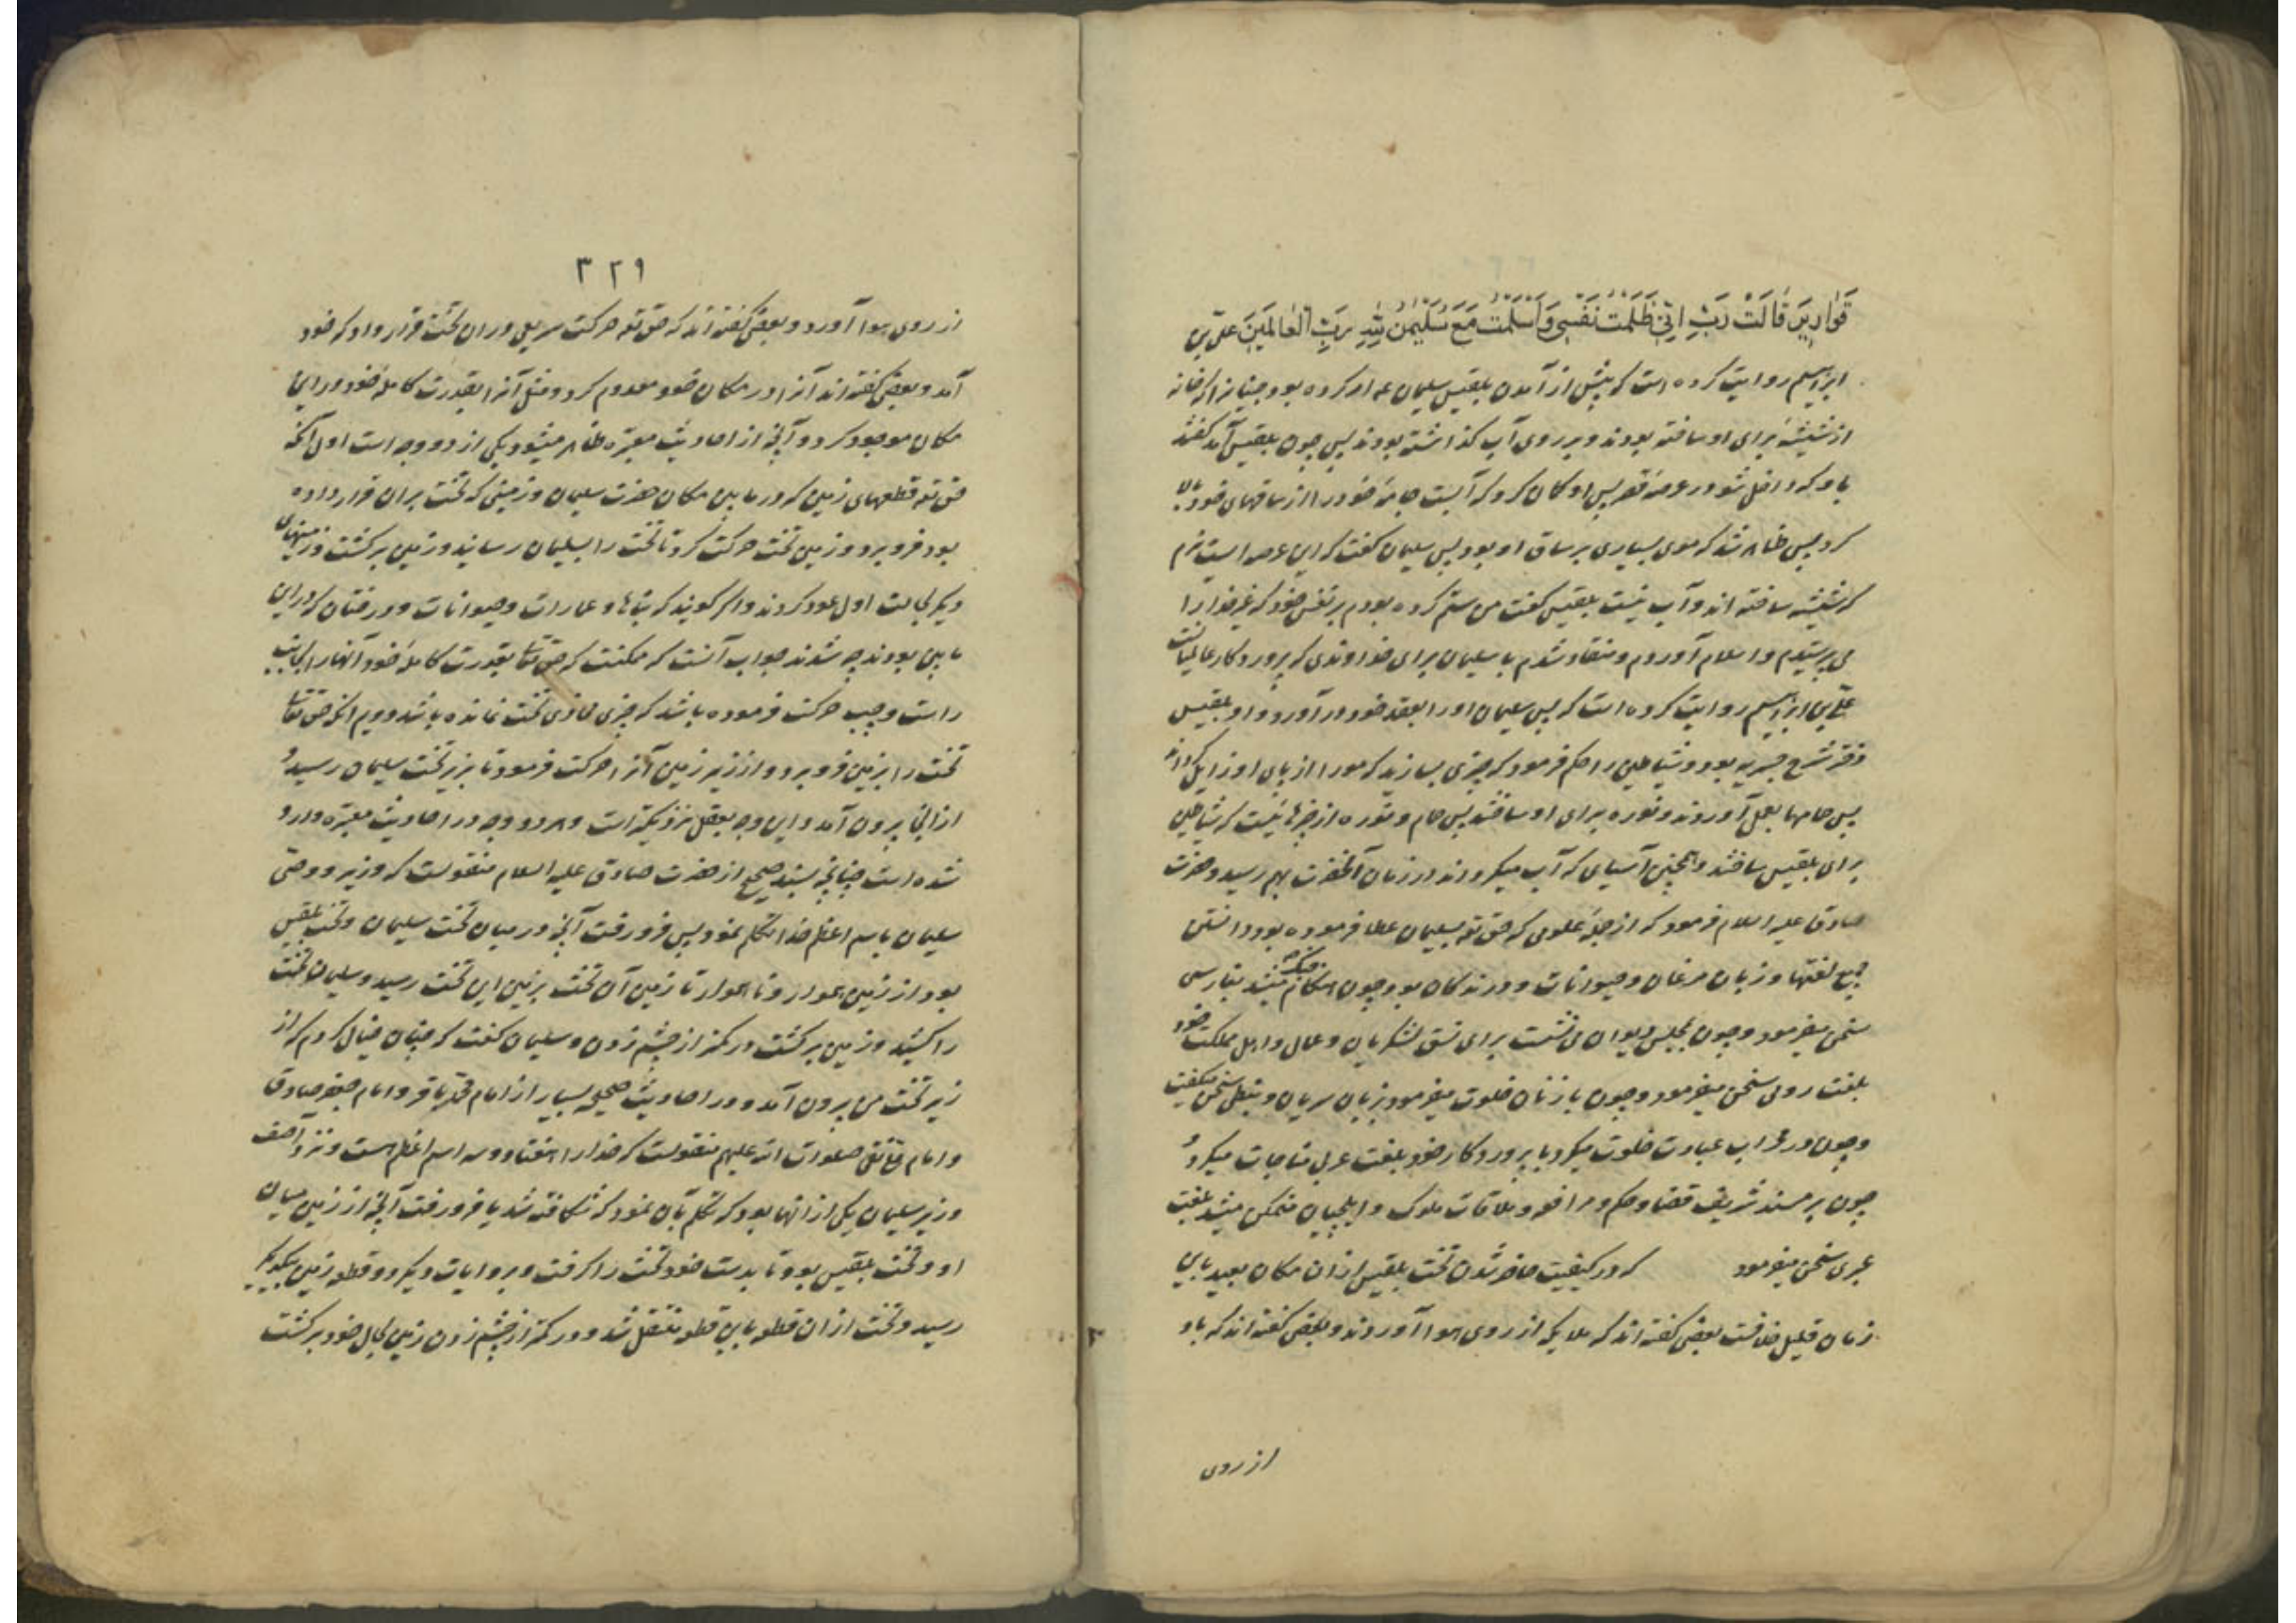 قَوارِيرَ قالَتْ رَبِّ اِنّي ظَلَمْتُ نَفْسي وَاَسْلَمْتُ مَعَ سُلَيْمنَ لِلّهِ رَبِّ الْعالَمينَ علی بن
ابراهیم روایت کرده است که پیش از آمدن بلقیس سلیمان ع امر کرده بود جنیانرا که خانه
از شیشه برای او ساخته بودند و بر روی آب گذاشته بودند پس چون بلقیس آمد گفتند
باو که داخل شو در عرصه قصر پس او گمان کرد که آبست جامه خود را از ساقهای خود بالا
کرد پس ظاهر شد که موی بسیاری بر ساق او بود پس سلیمان گفت که این عرصه ایست نرم
که شیشه ساخته اند و آب نیست بلقیس گفت من ستم کرده بودم بر نفس خود که غیر خدا را
می پرستیدم و اسلام آوردم و منقاد شدم با سلیمان برای خداوندی که پروردگار عالمیانست
علی بن ابراهیم روایت کرده است که پس سلیمان او را بعقد خود در آورد و او بلقیس
دختر شرح جیریه بود و شیاطین را حکم فرمود که چیزی بسازید که مو را از پای او زایل گرداند
پس حمامها بعمل آوردند و نوره برای او ساختند پس حمام و نوره از چیزهائیست که شیاطین
برای بلقیس ساختند و همچنین آسیای که آب میگرداند در زمان آنحضرت بهم رسید و حضرت
صادق علیه السلام فرمود که از جمله علومی که حق تع بسلیمان عطا فرموده بود دانستن
جمیع لغتها و زبان مرغان و حیوانات و درندگان بود و چون هنگام جنگ میشد بفارسی
سخن میفرمود و چون بمجلس دیوان می نشست برای نسق لشکریان و عمال و اهل مملکت خود
بلغت رومی سخن میفرمود و چون با زنان خلوت میفرمود بزبان سریان و نبطی سخن میگفت
و چون در محراب عبادت خلوت میکرد با پروردگار خود بلغت عربی مناجات میکرد و
چون بر مسند شریف قضا و حکم و مرافعه و ملاقات ملوک و ایلچیان متمکن میشد بلغت
عبری سخن میفرمود که در کیفیت حاضر شدن تخت بلقیس از ان مکان بعید باین
زمان قلیل خلافست بعضی گفته اند که ملایکه از روی هوا آوردند و بعضی گفته اند که باد
از روی
۳۲۹
از روی هوا آورد و بعضی گفته اند که حق تع حرکت سریعی در ان تخت قرار داد که خود
آمد و بعضی گفته اند آنرا در مکان خود معدوم کرد و مثل آنرا بقدرت کامله خود در این
مکان موجود کرد و آنچه از احادیث معتبره ظاهر میشود یکی از دو وجه است اول آنکه
حق تع قطعهای زمین که در مابین مکان حضرت سلیمان و زمینی که تخت بران قرار داده
بود فرو برد و زمین تخت حرکت کرد تا تخت را بسلیمان رسانید و زمین برگشت و زمینهای
دیگر بحالت اول عود کردند و اگر گویند که بناها و عمارات و حیوانات و درختان که در این
مابین بودند چه شدند جواب آنست که ممکنست که حق تعالی بقدرت کامله خود آنها را بجانب
راست و چپ حرکت فرموده باشد که چیزی محاذی تخت نمانده باشد دویم انکه حق تعالی
تخت را بزمین فرو برد و از زیر زمین آنرا حرکت فرمود تا بزیر تخت سلیمان رسید و
ازانجا بیرون آمد و این وجه بعقل نزدیکتر است و هر دو وجه در احادیث معتبره وارد
شده است چنانچه بسند صحیح از حضرت صادق علیه السلام منقولست که وزیر و وصی
سلیمان باسم اعظم خدا تکلم نمود پس فرو رفت آنچه در میان تخت سلیمان و تخت بلقیس
بود از زمین هموار و ناهموار تا زمین آن تخت بزمین این تخت رسید و سلیمان تخت
را کشید و زمین برگشت در کمتر از چشم زدن و سلیمان گفت که چنان خیال کردم که از
زیر تخت من بیرون آمد و در احادیث صحیحه بسیار از امام محمد باقر و امام جعفر صادق
و امام علی نقی صلوات الله علیهم منقولست که خدا را هفتاد و سه اسم اعظم هست و نزد آصف
وزیر سلیمان یکی از انها بود که تکلم بآن نمود که شکافته شد یا فرو رفت آنچه از زمین میان
او و تخت بلقیس بود تا بدست خود تخت را گرفت و بروایات دیگر دو قطعه زمین بیکدیگر
رسید و تخت از ان قطعه باین قطعه منتقل شد و در کمتر از چشم زدن زمین بحال خود برگشت